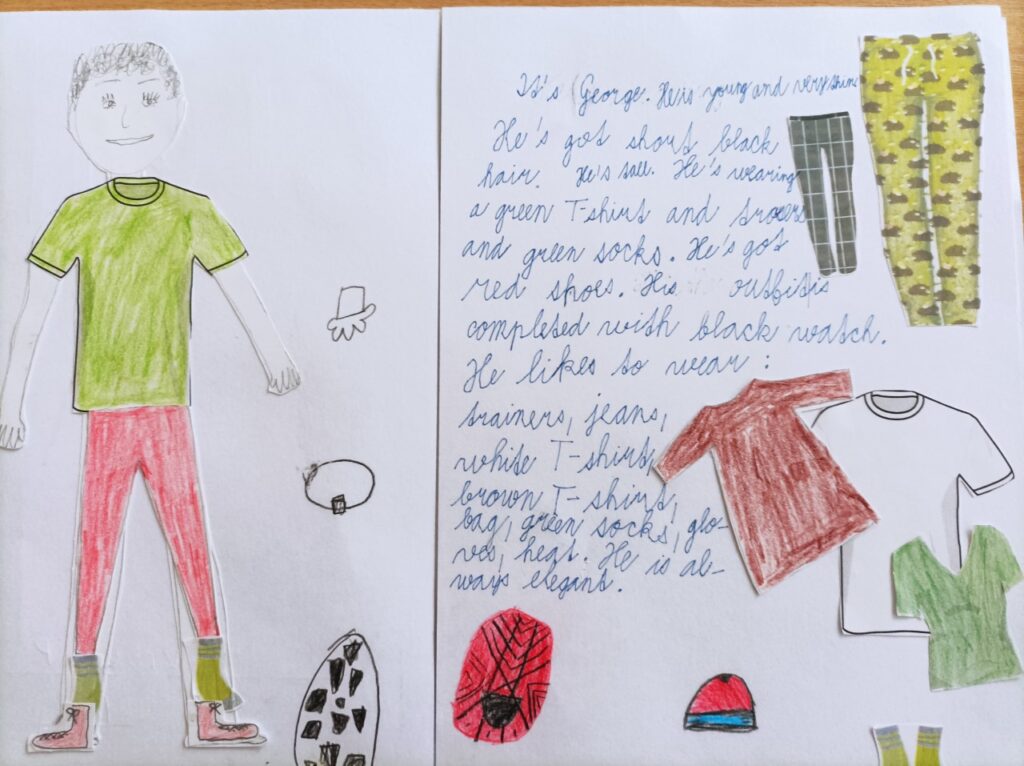 It's George. He is young and very shine
He's got short black
hair. He's sall. He's wearing
a green T-shirt and troxers
and green socks. He's got
red shoes. His outfit is
completed with black watch.
He likes to wear :
trainers, jeans,
white T-shirt,
brown T-shirt,
bag, green socks, glo-
ves, heat. He is al-
ways elegant.